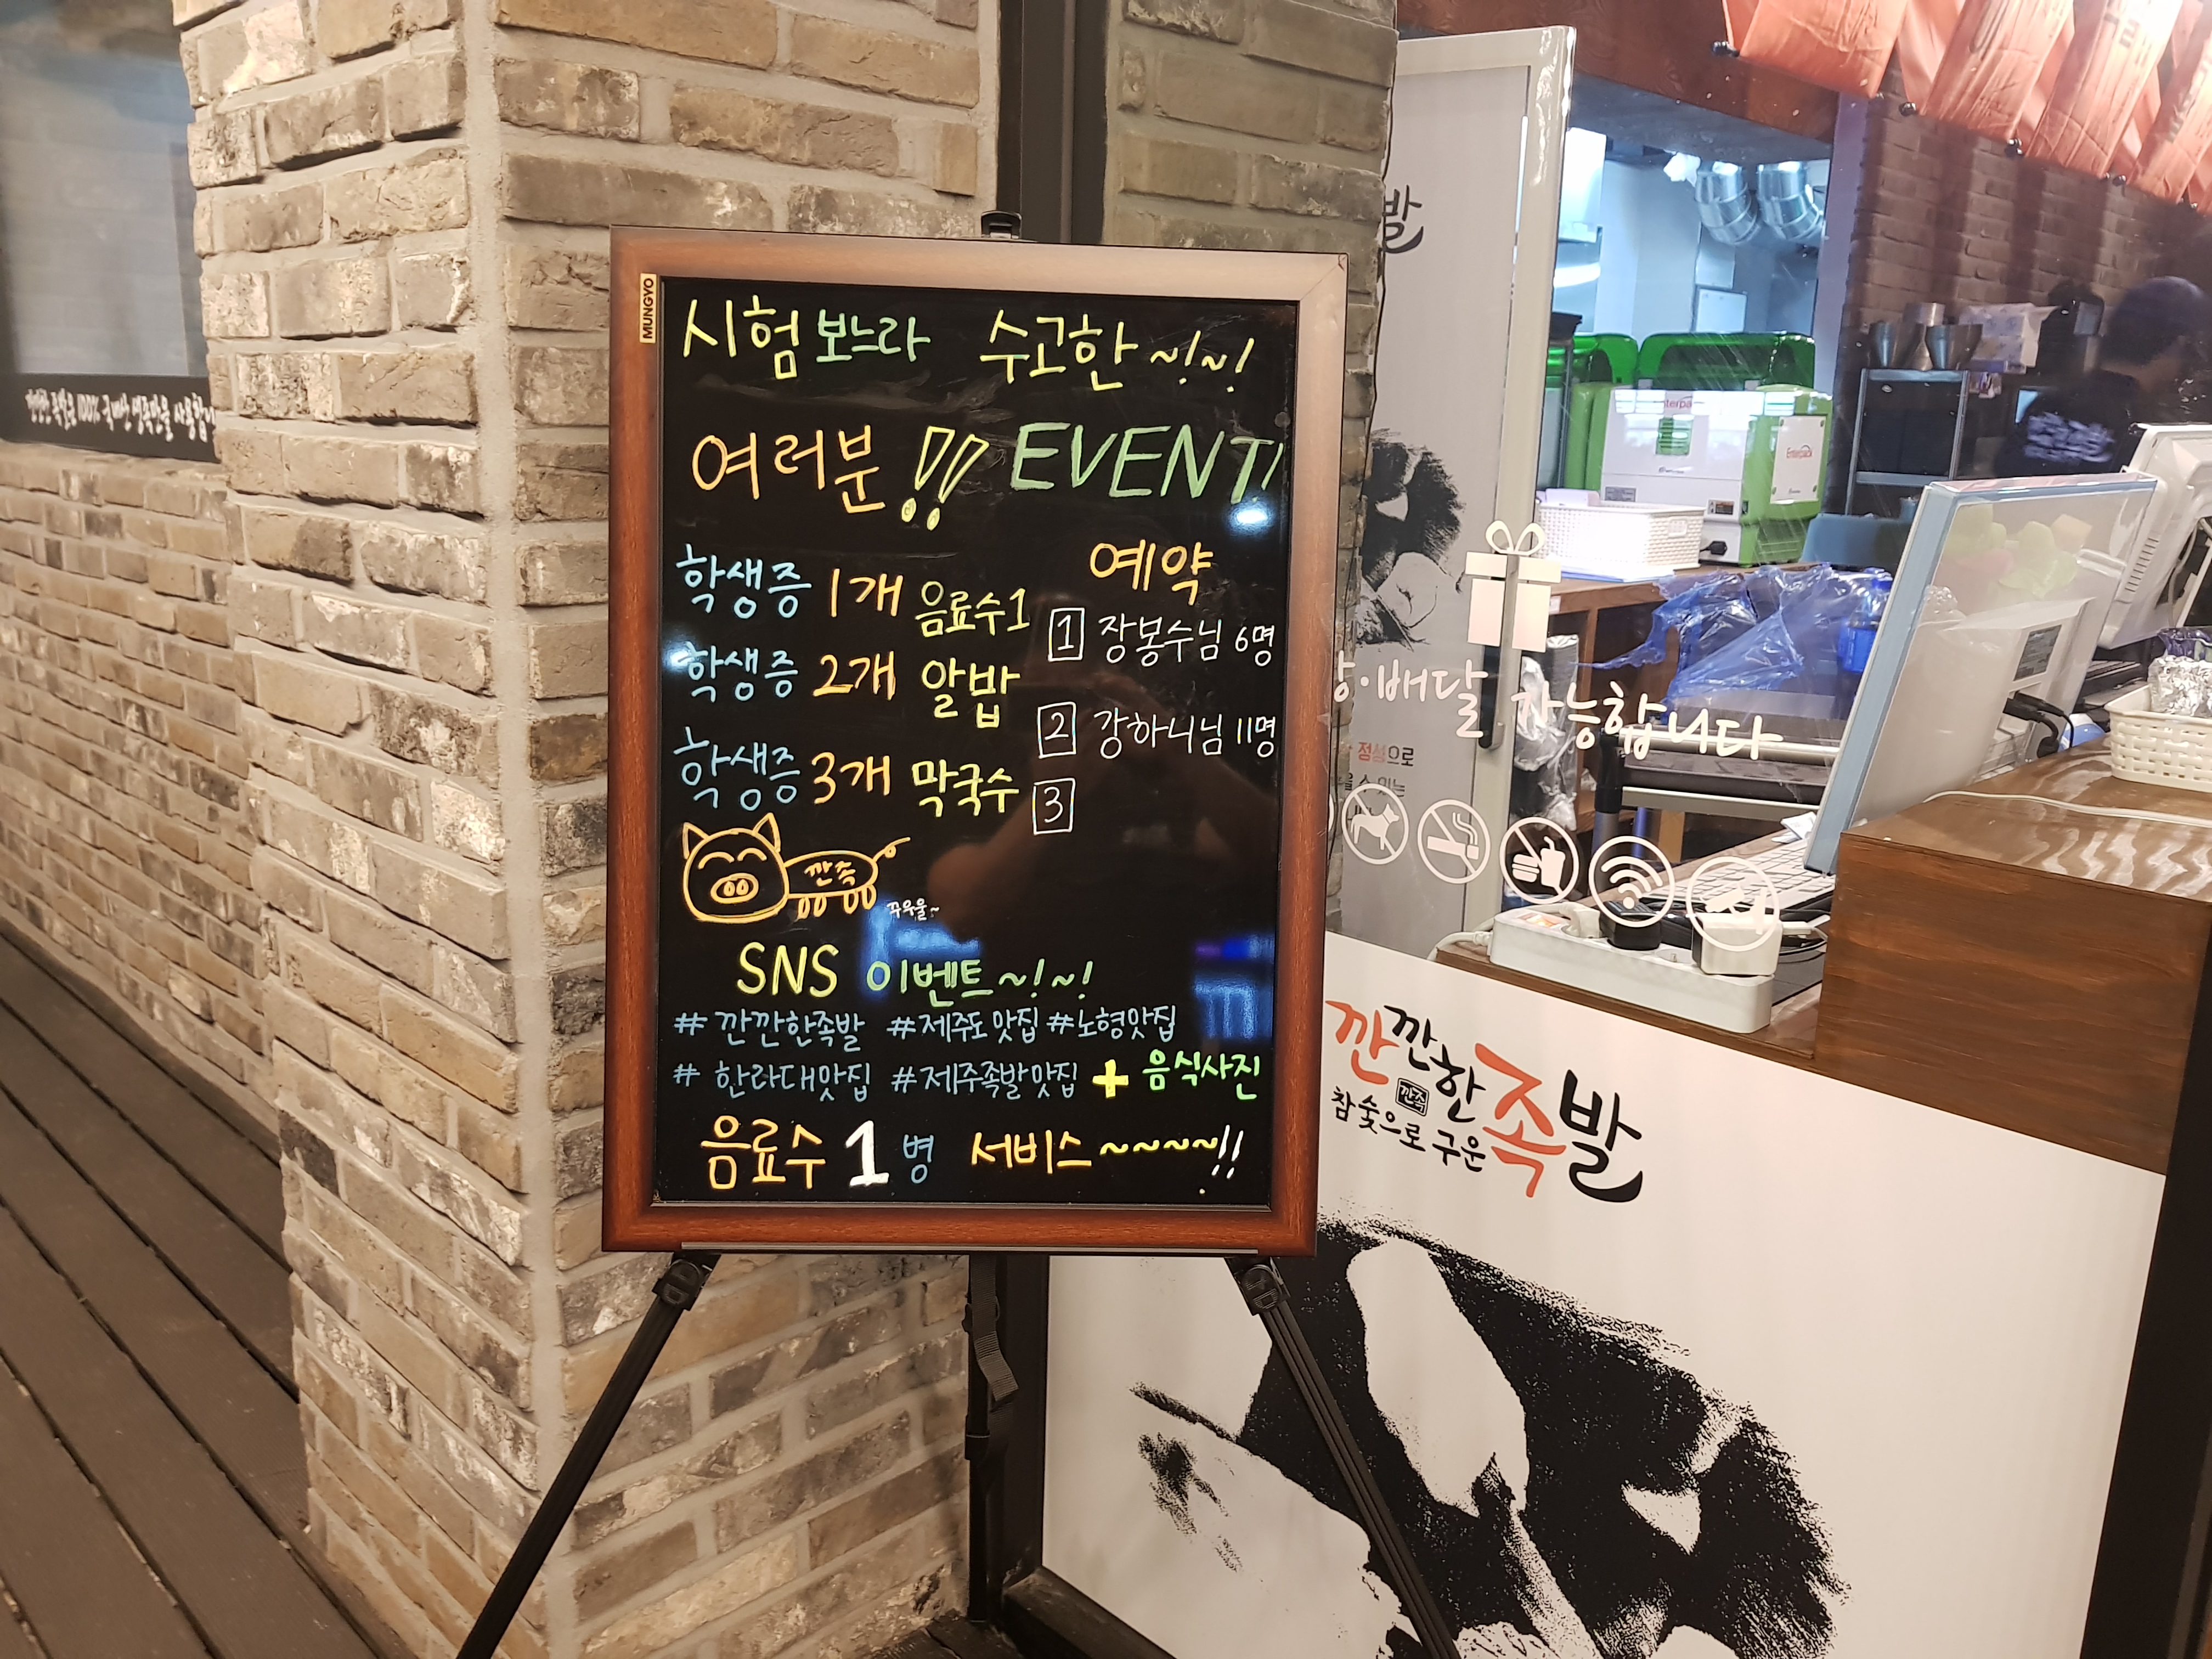 MUNGYO
시험 보느라 수고한 ~!~!
여러분 !! EVENT!
학생증 1개 음료수1
학생증 2개 알밥
학생증 3개 막국수
예약
1 장봉수님 6명
2 강하니님 11명
3
깐족
꾸우울~
SNS 이벤트~!~!
#깐깐한족발 #제주도맛집 #노형맛집
#한라대맛집 #제주족발맛집 + 음식사진
음료수 1병 서비스~~~~!!
발
·배달 가능합니다
정성으로
깐깐한족발
깐족
참숯으로 구운
Enterpack